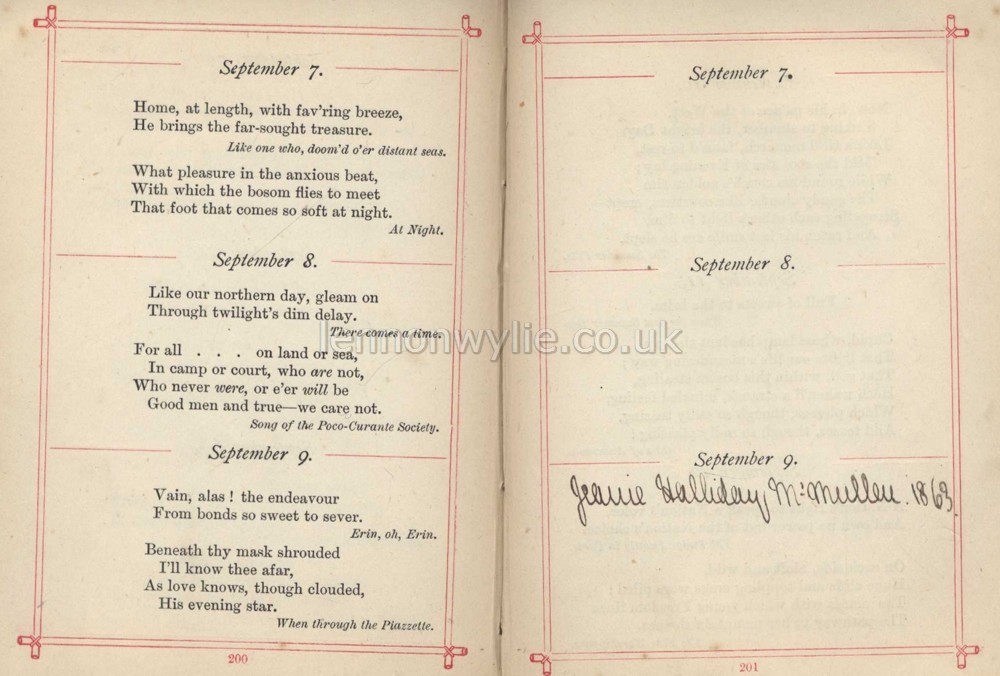 September 7.
Home, at length, with fav'ring breeze,
He brings the far-sought treasure.
Like one who, doom'd o'er distant seas.
What pleasure in the anxious beat,
With which the bosom flies to meet
That foot that comes so soft at night.
At Night.
September 8.
Like our northern day, gleam on
Through twilight's dim delay.
There comes a time.
For all . . . on land or sea,
In camp or court, who are not,
Who never were, or e'er will be
Good men and true—we care not.
Song of the Poco-Curante Society.
September 9.
Vain, alas! the endeavour
From bonds so sweet to sever.
Erin, oh, Erin.
Beneath thy mask shrouded
I'll know thee afar,
As love knows, though clouded,
His evening star.
When through the Piazzette.
200
September 7.
September 8.
September 9.
Jeanie Halliday McMullen. 1863.
201
lennonwylie.co.uk